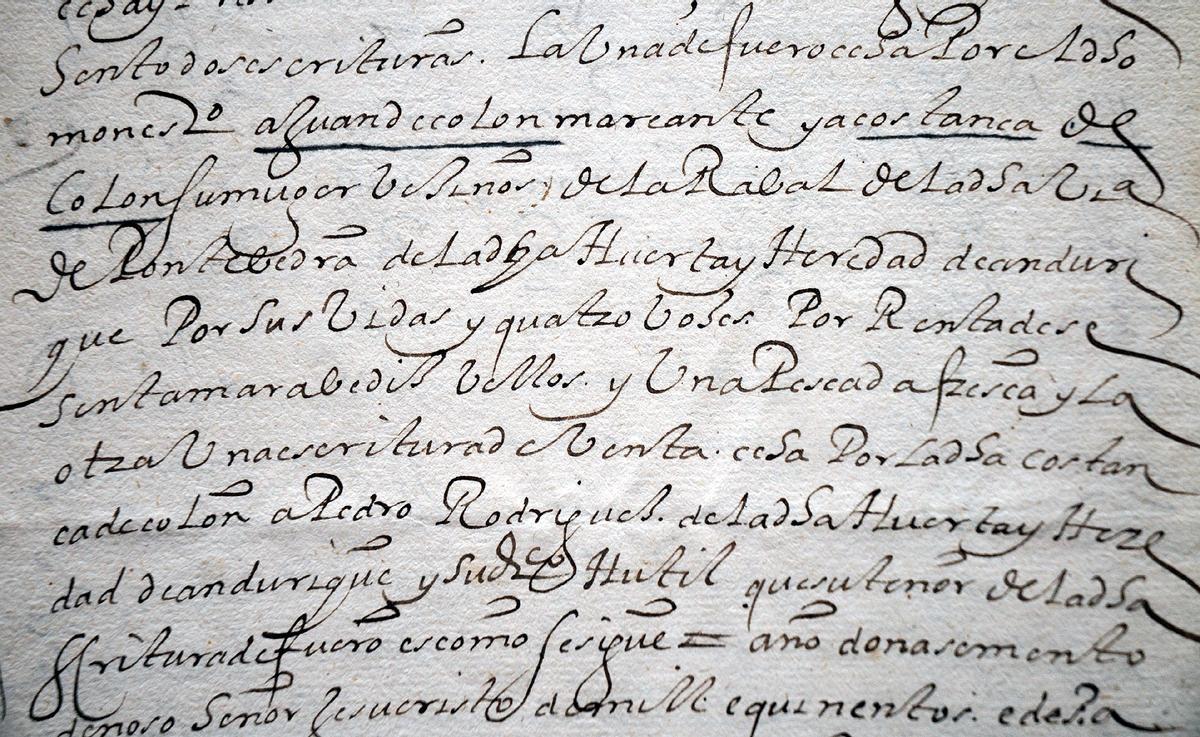 sentodos escrituras. La Una de fuero echa Por el dho
monesto a Juan de colon mareante y a costança de
Colon su muger vesinos, de la Rabal de la dha Vila
de Pontevedra de la dha Huerta y Heredad de anduri
que Por sus Vidas y quatro voses. Por Renta de se
sentamaravedis vellos. y Una Pescada fresca y La
otra Una escritura de Venta. echa Por la dha costan
ca de colon a Pedro Rodrigues. de la dha Huerta y Here
dad de andurique y su dro Hutil que su tenor de la dha
Escritura de fuero es como se sigue = año do nasemento
denoso Señor Jesucristo de mill e quinentos. e